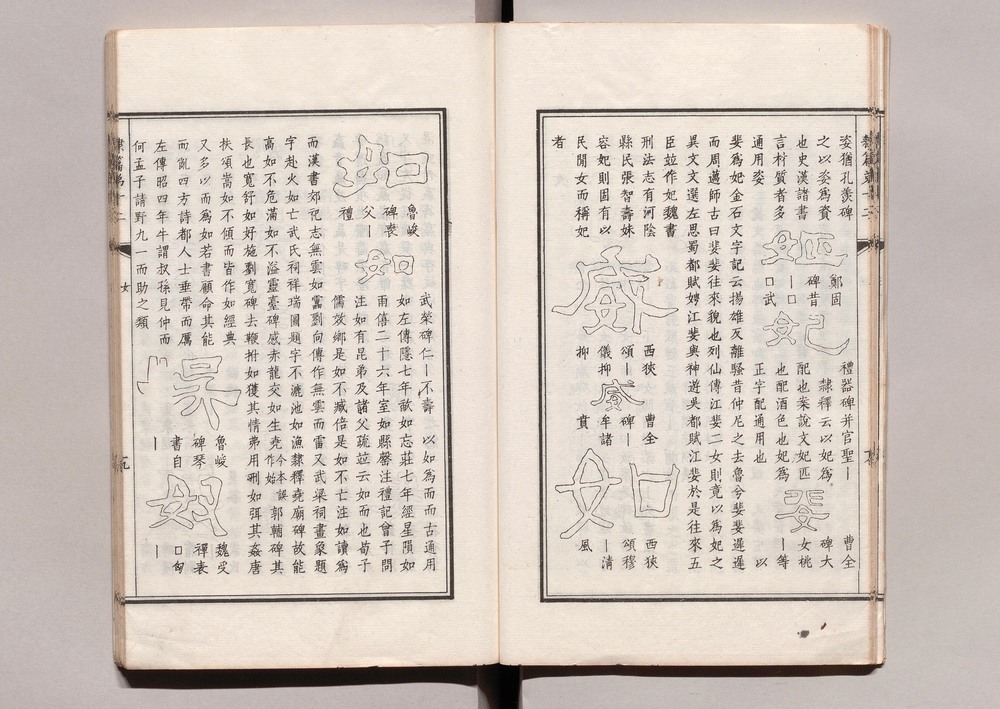 姿猶孔羨碑
之以姿為資
也史漢諸書
言材質者多
通用姿
妃
鄭固
碑昔
｜口
口武
妃
禮器碑并官聖｜
隸釋云以妃為
配也案說文妃匹
也配酒色也妃為
正字配通用也
婓
曹全
碑大
女桃
｜等
以
婓為妃金石文字記云揚雄反離騷昔仲尼之去魯兮婓婓遲遲
而周邁師古曰婓婓往來貌也列仙傳江婓二女則竟以為妃之
異文文選左思蜀都賦娉江婓與神遊吳都賦江婓於是往來五
臣竝作妃魏書
刑法志有河陰
縣民張智壽妹
容妃則固有以
民閒女而稱妃
者
威
西狹
頌｜
儀抑
抑
威
曹全
碑｜
牟諸
賁
如
西狹
頌穆
｜清
風
如
魯峻
碑衷
父｜
禮
如
武榮碑仁｜不壽 以如為而而古通用
如左傳隱七年歃如忘莊七年經星隕如
雨僖二十六年室如縣罄注禮記曾子問
注如有昆弟及諸父疏竝云如而也荀子
儒效鄉是如不臧倍是如不亡注如讀為
而漢書郊祀志無雲如靁劉向傳作無雲而雷又武梁祠畫象題
字赴火如亡武氏祠祥瑞圖題字不漉池如漁隸釋堯廟碑故能
高如不危滿如不溢靈臺碑感赤龍交如生堯今本誤作始郭輔碑其
長也寬舒如好施劉寬碑去鞭拊如獲其情弗用刑如弭其姦唐
扶頌嵩如不傾而皆作如經典
又多以而為如若書顧命其能
而亂四方詩都人士垂帶而厲
左傳昭四年牛謂叔孫見仲而
何孟子請野九一而助之類
魯峻
碑琴
書自
｜
魏受
禪表
口匈
｜
隸篇第十二
女